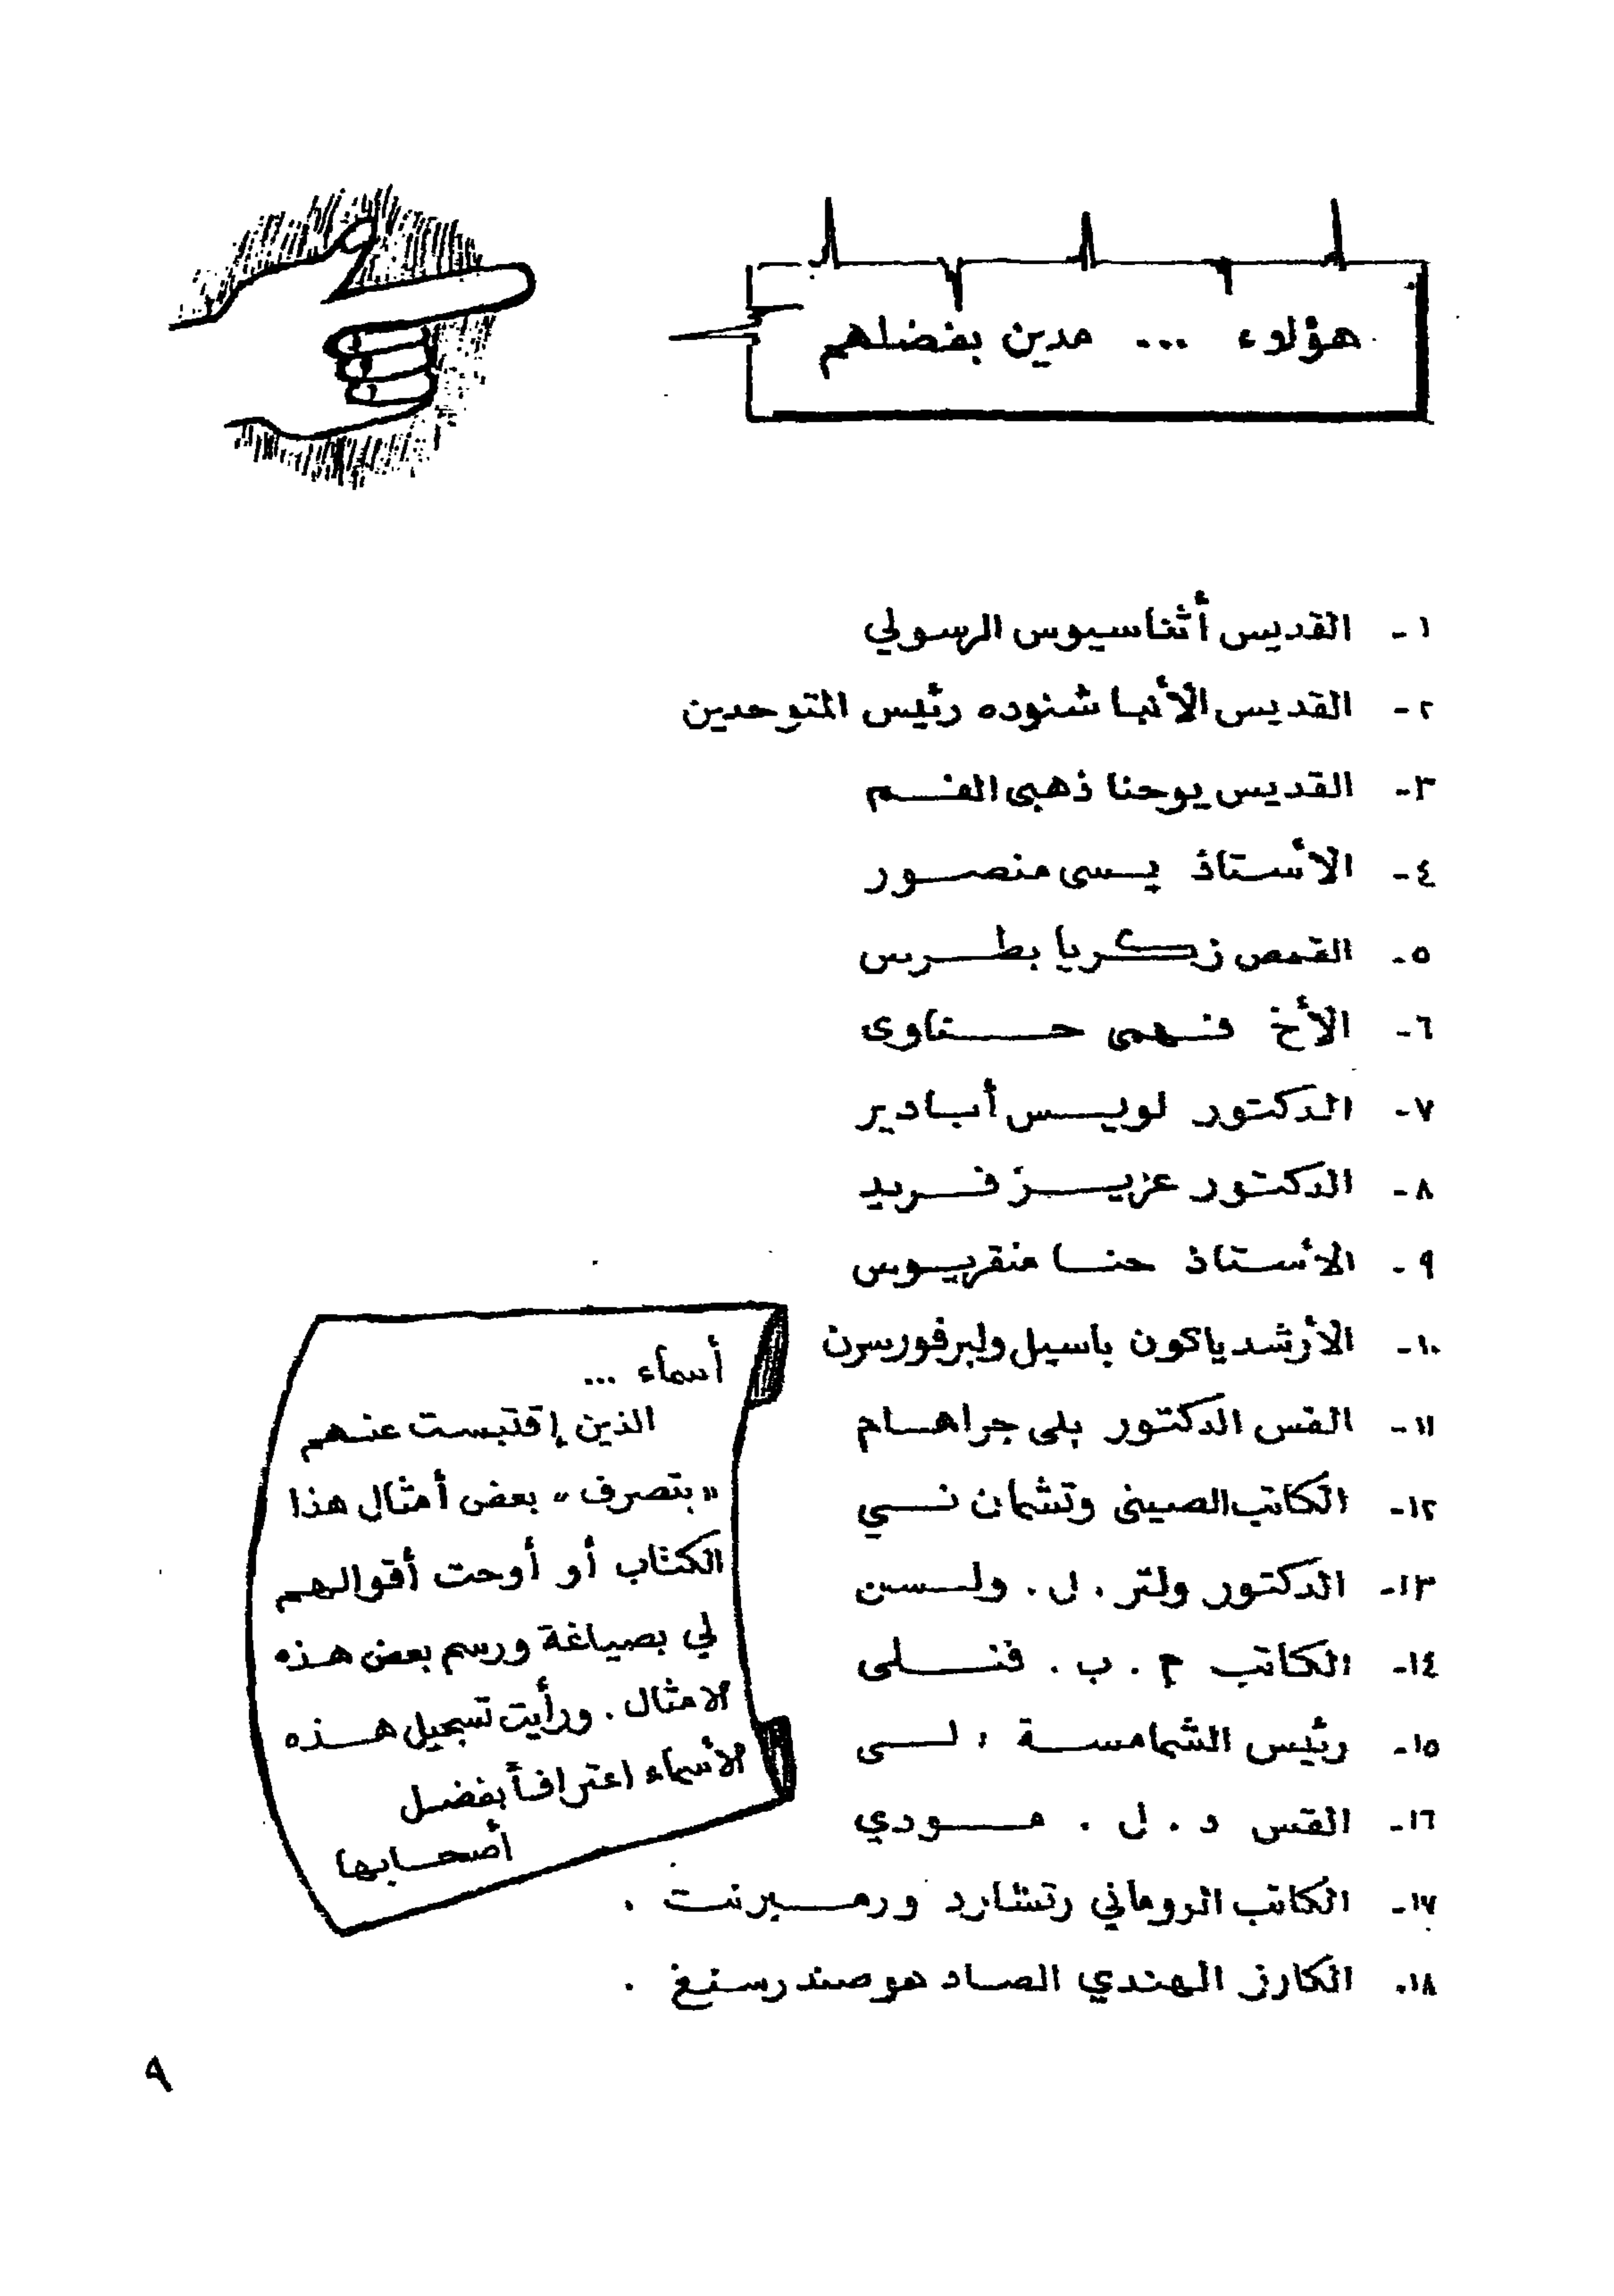 هؤلاء ... مدين بفضلهم
١- القديس أثناسيوس الرسولي
٢- القديس الأنبا شنوده رئيس المتوحدين
٣- القديس يوحنا ذهبى الفم
٤- الأستاذ يسى منصور
٥- القمص زكريا بطرس
٦- الأخ فهمى حناوى
٧- الدكتور لويس أبادير
٨- الدكتور عزيز فريد
٩- الأستاذ حنا منقريوس
١٠- الأرشدياكون باسيل ولبرفورسن
١١- القس الدكتور بلى جراهام
١٢- الكاتب الصينى وتشمان نسي
١٣- الدكتور ولتر . ل . ولسن
١٤- الكاتب م . ب . فنلى
١٥- رئيس الشمامسة : لى
١٦- القس د . ل . مودي
١٧- الكاتب الروماني رتشارد ورمبرنت .
١٨- الكارز الهندي الصاد هو صندرسنغ .
أسماء ...
الذين إقتبست عنهم
"بتصرف" بعض أمثال هذا
الكتاب أو أوحت أقوالهم
لي بصياغة ورسم بعض هذه
الامثال . ورأيت تسجيل هذه
الأسماء اعترافاً بفضل
أصحابها
٩